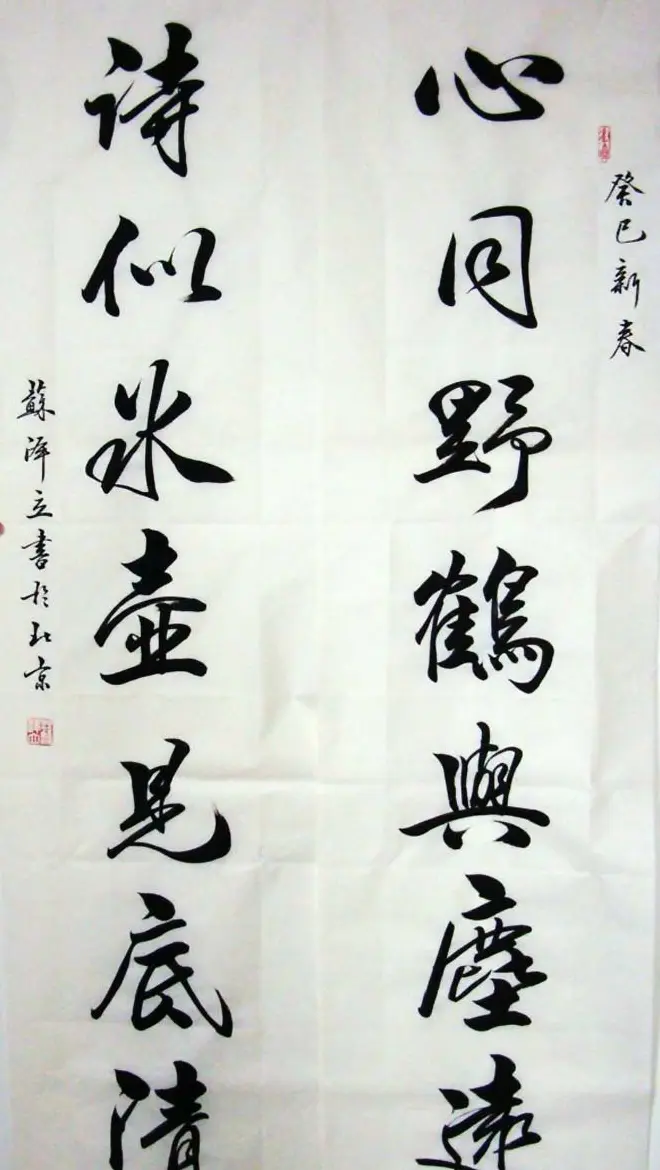 癸巳新春
心同野鶴與塵遠
詩似冰壺見底清
蘇澤立書於北京